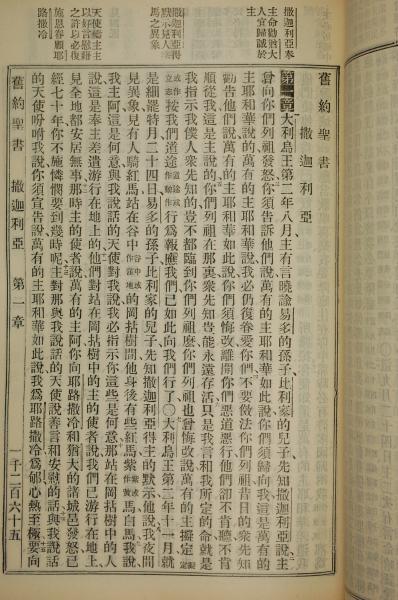 撒迦利亞奉
主命勸猶大
人宜歸誠於
主
撒迦利亞得
默示見人乘
馬之異象
天使禱主主
以好言慰藉
之許以必復
施恩眷顧耶
路撒冷
舊約聖書
撒迦利亞
第一章大利烏王第二年八月主有言曉諭易多的孫子比利家的兒子先知撒迦利亞說主
曾向你們列祖發怒你須告訴他們說萬有的主耶和華如此說你們須歸向我這是萬有的
主耶和華說的萬有的主耶和華說我必仍復眷愛你們不要傚法你們列祖昔日的衆先知
勸告他們說萬有的主耶和華如此說你們須悔改離開你們惡道惡行他們卻不肯聽不肯
順從我這是主說的你們列祖在那裏衆先知豈能永遠存活只是我言和我所定的命就是
我指示我僕人衆先知的豈不都臨到你們列祖麼你們列祖也曾悔改說萬有的主擬定
按我們道途行爲報應我們已如此向我們行了〇大利烏王第二年十一月就
是細罷特月二十四日易多的孫子比利家的兒子先知撒迦利亞得主的默示他說我夜間
見異象見有人騎紅馬站在谷中的岡拮樹間他身後有些紅馬紫馬白馬我說
我主阿這是何意與我說話的天使對我說我必指示你這些是何意那站在岡拮樹中的人
說這是奉主差遣游行在地上的他們對站在岡拮樹中的主的使者說我們已游行在地上
見全地都安居無事那時主的使者說萬有的主阿你向耶路撒冷和猶大的諸城邑發怒已
經七十年你不施憐憫要到幾時呢主對那與我說話的天使說善言和安慰的話與我說話
的天使吩咐我說你須宣告說萬有的主耶和華如此說我爲耶路撒冷爲郇心熱至極要向
舊約聖書 撒迦利亞 第一章 千二百六十五